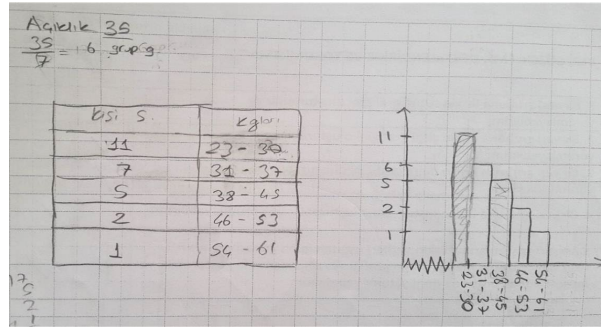 Açıklık 35
35
7 = 6 grup g
kişi S. kgları
11 23 - 30
7 31 - 37
5 38 - 45
2 46 - 53
1 54 - 61
11
6
5
2
1
23-30
31-37
38-45
46-53
54-61
17
5
2
1